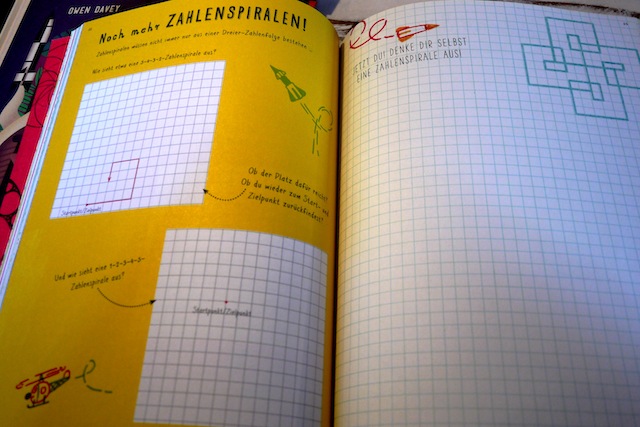 OWEN DAVEY
Noch mehr ZAHLENSPIRALEN!
Zahlenspiralen müssen nicht immer nur aus einer Dreier-Zahlenfolge bestehen ...
Wie sieht etwa eine
-Zahlenspirale aus?
Startpunkt/Zielpunkt
Ob der Platz dafür reicht?
Ob du wieder zum Start- und
Zielpunkt zurückfindest?
Und wie sieht eine 1-2-3-4-5-
Zahlenspirale aus?
Startpunkt/Zielpunkt
JETZT DU! DENKE DIR SELBST
EINE ZAHLENSPIRALE AUS!